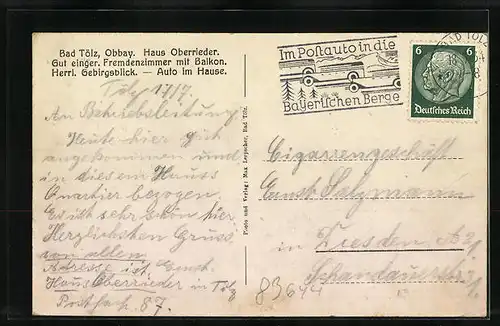 Bad Tölz, Obbay. Haus Oberrieder.
Gut einger. Fremdenzimmer mit Balkon.
Herrl. Gebirgsblick. — Auto im Hause.
Tölz 17/7.
An Betriebsleitung
Heute hier gut
angekommen und
in diesem Hauss
Quartier bezogen
Es ist sehr schön hier
Herzlichsten Gruss
von allen
Adresse ist Ernst
Haus Oberrieder in Tölz
Postfach 87.
Photo und Verlag: Max Leopacher, Bad Tölz.
Im Postauto in die
Bayerischen Berge
BAD TÖLZ
6 6
Deutsches Reich
Cigarrengeschäft
Ernst Salzmann
in Dresden A
Schandauerstr.
83644